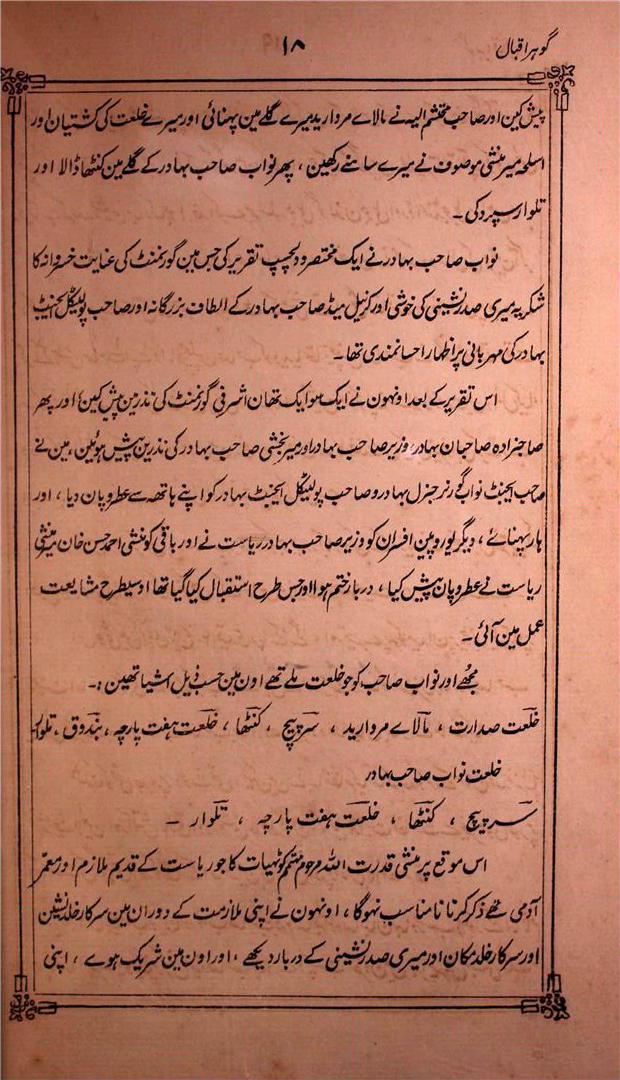 گوہر اقبال
۱۸
پیش کین اور صاحب محتشم الیہ نے مالاے مروارید میرے گلے مین پہنائی اور میرے خلعت کی کشتیان اور
اسلحہ میر منشی موصوف نے میرے سامنے رکھین ، پھر نواب صاحب بہادر کے گلے مین کنٹھا ڈالا اور
تلوار سپرد کی ۔
نواب صاحب بہادر نے ایک مختصر و دلچسپ تقریر کی جس مین گورنمنٹ کی عنایت خسروانہ کا
شکریہ میری صدر نشینی کی خوشی اور کرنیل میڈ صاحب بہادر کے الطاف بزرگانہ اور صاحب پولیٹکل ایجنٹ
بہادر کی مہربانی پر اظہار احسانمندی تھا ۔
اس تقریر کے بعد اونہون نے ایک سو ایک تھان اشرفی گورنمنٹ کی نذر مین پیش کین اور پھر
صاحبزادہ صاحبان بہادر وزیر صاحب بہادر اور میر بخشی صاحب بہادر کی نذرین پیش ہوئین ، مین نے
صاحب ایجنٹ نواب گورنر جنرل بہادر و صاحب پولیٹکل ایجنٹ بہادر کو اپنے ہاتھہ سے عطر و پان دیا ، اور
ہار پہنائے ، دیگر یوروپین افسران کو وزیر صاحب بہادر ریاست نے اور باقی کو منشی احمد حسن خان میر منشی
ریاست نے عطر و پان پیش کیا ، دربار ختم ہوا اور جس طرح استقبال کیا گیا تھا اوسیطرح مشایعت
عمل مین آئی ۔
مجھے اور نواب صاحب کو جو خلعت ملے تھے اون مین حسب ذیل اشیا تھین :۔
خلعت صدارت ، مالاے مروارید ، سرپیچ ، کنٹھا ، خلعت ہفت پارچہ ، بندوق ، تلوار
خلعت نواب صاحب بہادر
سرپیچ ، کنٹھا ، خلعت ہفت پارچہ ، تلوار ۔
اس موقع پر منشی قدرت اللہ مرحوم مہتمم کوٹہیات کا جو ریاست کے قدیم ملازم اور معمر
آدمی تھے ذکر کرنا نامناسب نہوگا ، اونہون نے اپنی ملازمت کے دوران مین سرکار خلد نشین
اور سرکار خلد مکان اور میری صدر نشینی کے دربار دیکھے ، اور اون مین شریک ہوے ، اپنی